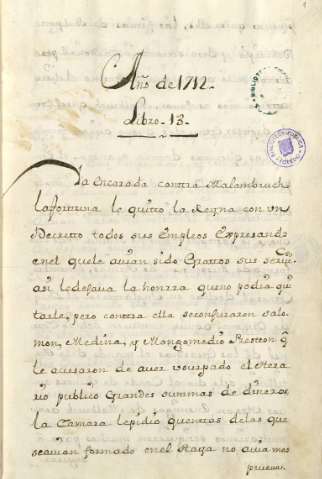 Año de 1712.
Libro 13.
Ya encarada contra Malambruch
la fortuna le quitto la Reyna con un
Decretto todos sus Empleos Expresando
en el que le avian sido Grattos sus servi.os
asi le dejava la honrra que no podia qui
tarle, pero contra ella se conjuraron Salo
mon, Medina, y Mongomedio Presseon q.e
le acusaron de aver usurpado al Hera
rio publico Grandes summas de dineros
la Camara le pidio quentas de las que
se avian formado en el Haya no aviamos
pruevas.